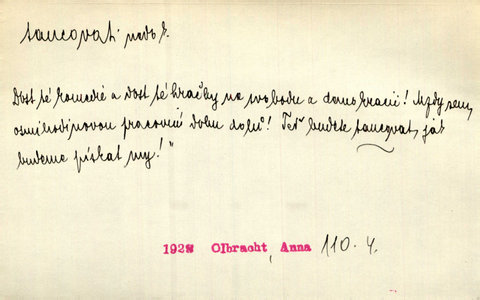 tancovat nedok.
Dost té komedie a dost té hračky na svobodu a demokracii! Mzdy sem,
osmihodinovou pracovní dobu dolů! Teď budete tancovat, jak
budeme pískat my!"
1928 Olbracht, Anna 110. 4.